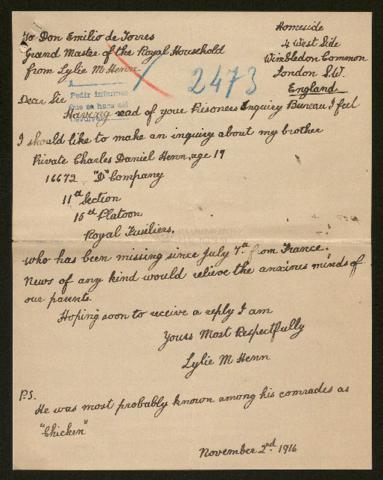 To Don Emilio de Torres
Grand Master of the Royal Household
from Lylie M Henn
Homeside
4 West Side
Wimbledon Common
London S.W.
England
2473
Dear Sir
Pedir informes
Having read of your Prisoners Enquiry Bureau I feel
I should like to make an inquiry about my brother
Private Charles Daniel Henn, age 19
16672 "D" Company
11th Section
15th Platoon
Royal Fusiliers,
who has been missing since July 7th from France.
News of any kind would relieve the anxious minds of
our parents.
Hoping soon to receive a reply I am
Yours Most Respectfully
Lylie M Henn
P.S.
He was most probably known among his comrades as
"Chicken"
November 2nd. 1916